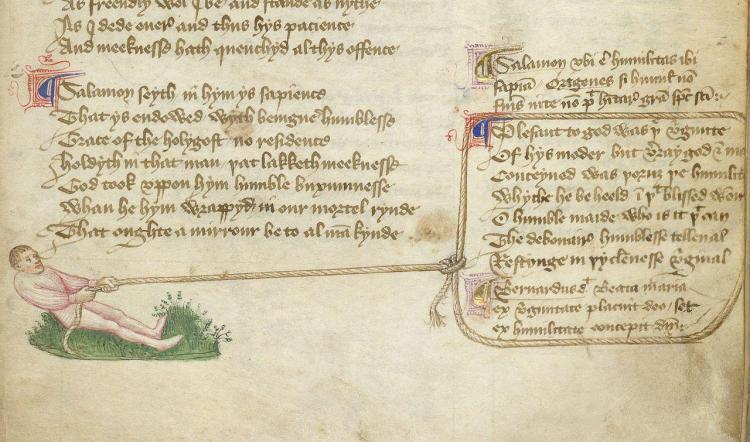 As freendly wol I be and stande as nythe
As I dede euer and thus hys pacience
And meeknesse hath quenchyd al thys offence
Salamon seyth in hym ys sapience
That ys endowed wyth benigne humblesse
Grace of the holygost no residence
Holdyth in that man þat lakketh meeknesse
God took vppon hym humble buxumnesse
Whan he hym wrappyd in our mortel rynde
That oughte a mirrour be to al mākynde
Salamon vbi ē humilitas ibi
sapīa Origenes si humil nō
Plesant to god was þe v̉ginite
Of hys moder but v̉ray god
Conceyued was þe humilit
Whyche he beheeld ī þt blissed
O humble maide who is it þt can
The debonair humblesse telle
Restynge in þy clennesse v̉ginal
Bernardus Beata maria
ex v̉ginitate placuit deo set
ex humilitate concepit dm̄